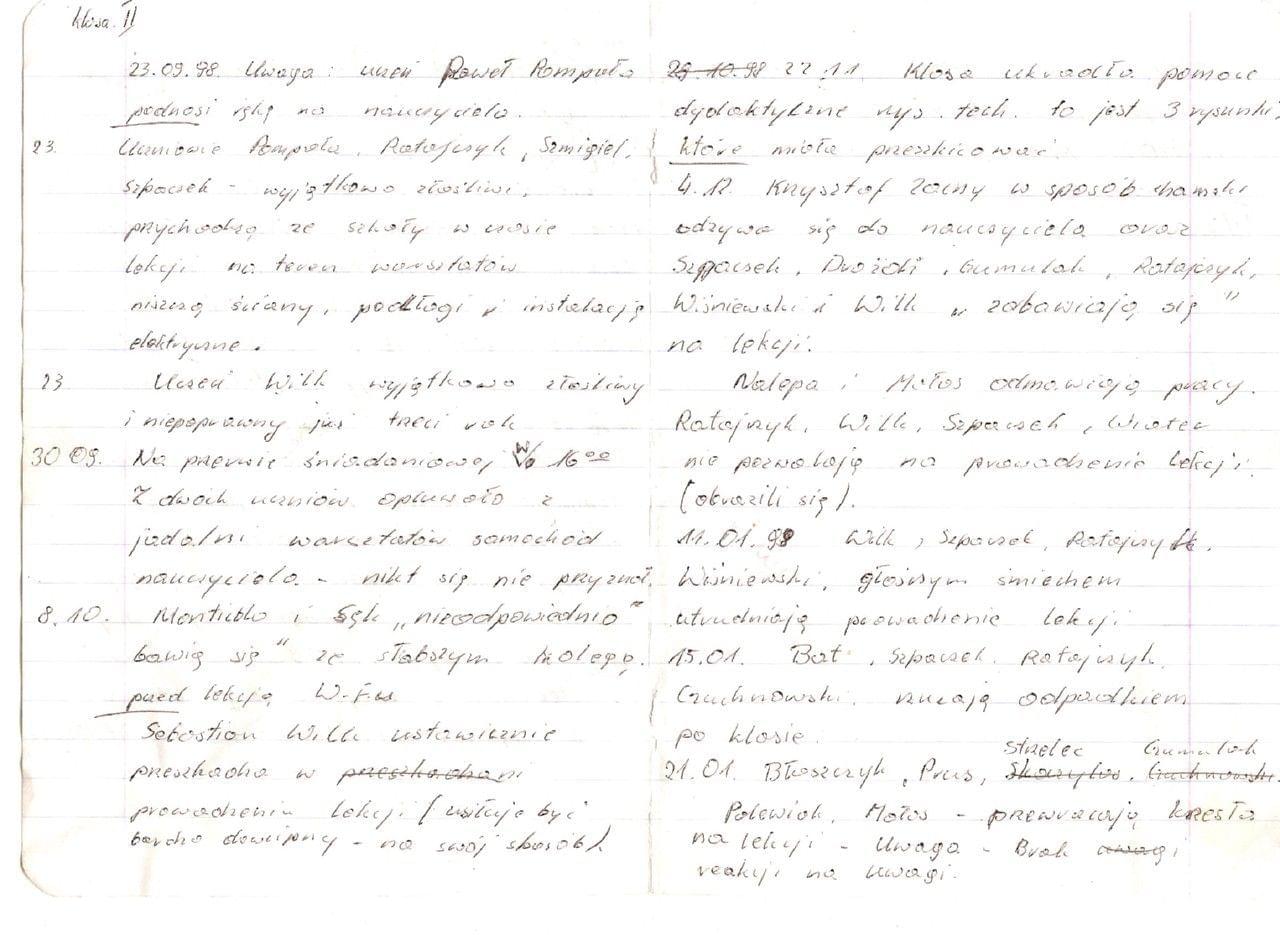 klasa II
23.09.98. Uwaga: uczeń Paweł Pompała
podnosi rękę na nauczyciela.
23. Uczniowie Pompała, Ratajczyk, Szmigiel,
Szpaczek - wyjątkowo złośliwi,
przychodzą ze szkoły w czasie
lekcji na teren warsztatów
niszczą ściany, podłogi i instalację
elektryczne.
23 Uczeń Wilk wyjątkowo złośliwy
i niepoprawny już trzeci rok
30 09. Na przerwie śniadaniowej 16⁰⁰
2 dwóch uczniów opluwało z
jadalni warsztatów samochód
nauczyciela - nikt się nie przyznał.
8.10. Montiblo i Sęk „nieodpowiednio"
bawią się" ze słabszym kolegą.
przed lekcją W-F-u
Sebastian Wilk ustawicznie
przeszkadza w przeszkadzani
prowadzeniu lekcji (usiłuje być
bardzo dowcipny - na swój sposób)
29.10.98 22.11. Klasa ukradła pomoce
dydaktyczne rys. tech. to jest 3 rysunki,
które miała przeszkicować.
4.12. Krzysztof Zacny w sposób chamski
odzywa się do nauczyciela oraz
Szpaczek, Drożdż, Gumulak, Ratajczyk,
Wiśniewski i Wilk „zabawiają się"
na lekcji.
Nalepa i Małos odmawiają pracy.
Ratajczyk, Wilk, Szpaczek, Wiater
nie pozwalają na prowadzenie lekcji
(obrazili się).
11.01.98 Wilk, Szpaczek, Ratajczyk,
Wiśniewski, głośnym śmiechem
utrudniają prowadzenie lekcji
15.01. Bat, Szpaczek, Ratajczyk,
Czuchnowski, rzucają odpadkiem
po klasie.
Strzelec Gumulak
21.01. Błaszczyk, Prus, Skarylus, Czuchnowski.
Polewiak, Małos - przewracają krzesła
na lekcji - Uwaga - Brak uwagi
reakcji na uwagi.